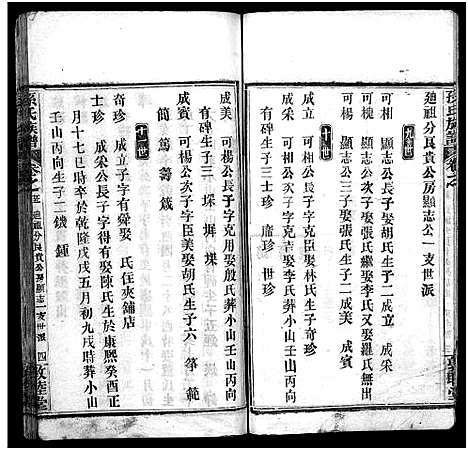 廸祖分民貴公房顯志公一支世派
九世
可相 顯志公長子娶胡氏生子二 成立 成采
可楊 顯志公次子娶張氏繼娶李氏又娶羅氏無出
可槐 顯志公三子娶張氏生子二 成美 成賓
十世
成立 可相公長子字克臣娶林氏生子奇珍
成采 可相公次子字克吉娶李氏葬小山壬山丙向
有碑生子三 士珍 席珍 世珍
成美 可楊公長子字克用娶殷氏葬小山壬山丙向
有碑生子三 埰 墀 堁
成賓 可楊公次子字臣美娶胡氏生子六 箏 範
簡 篤 籌 箴
十一世
奇珍 成立子字得有舜娶 氏住夾舖店
士珍 成采公長子字得有娶陳氏生於康熙癸酉正
月十七巳時卒於乾隆戊戌五月初九戌時葬小山
壬山丙向生子二 錢 鍾
孫氏族譜
卷之
廸祖分民貴公房顯志一支世派 四
敦睦堂